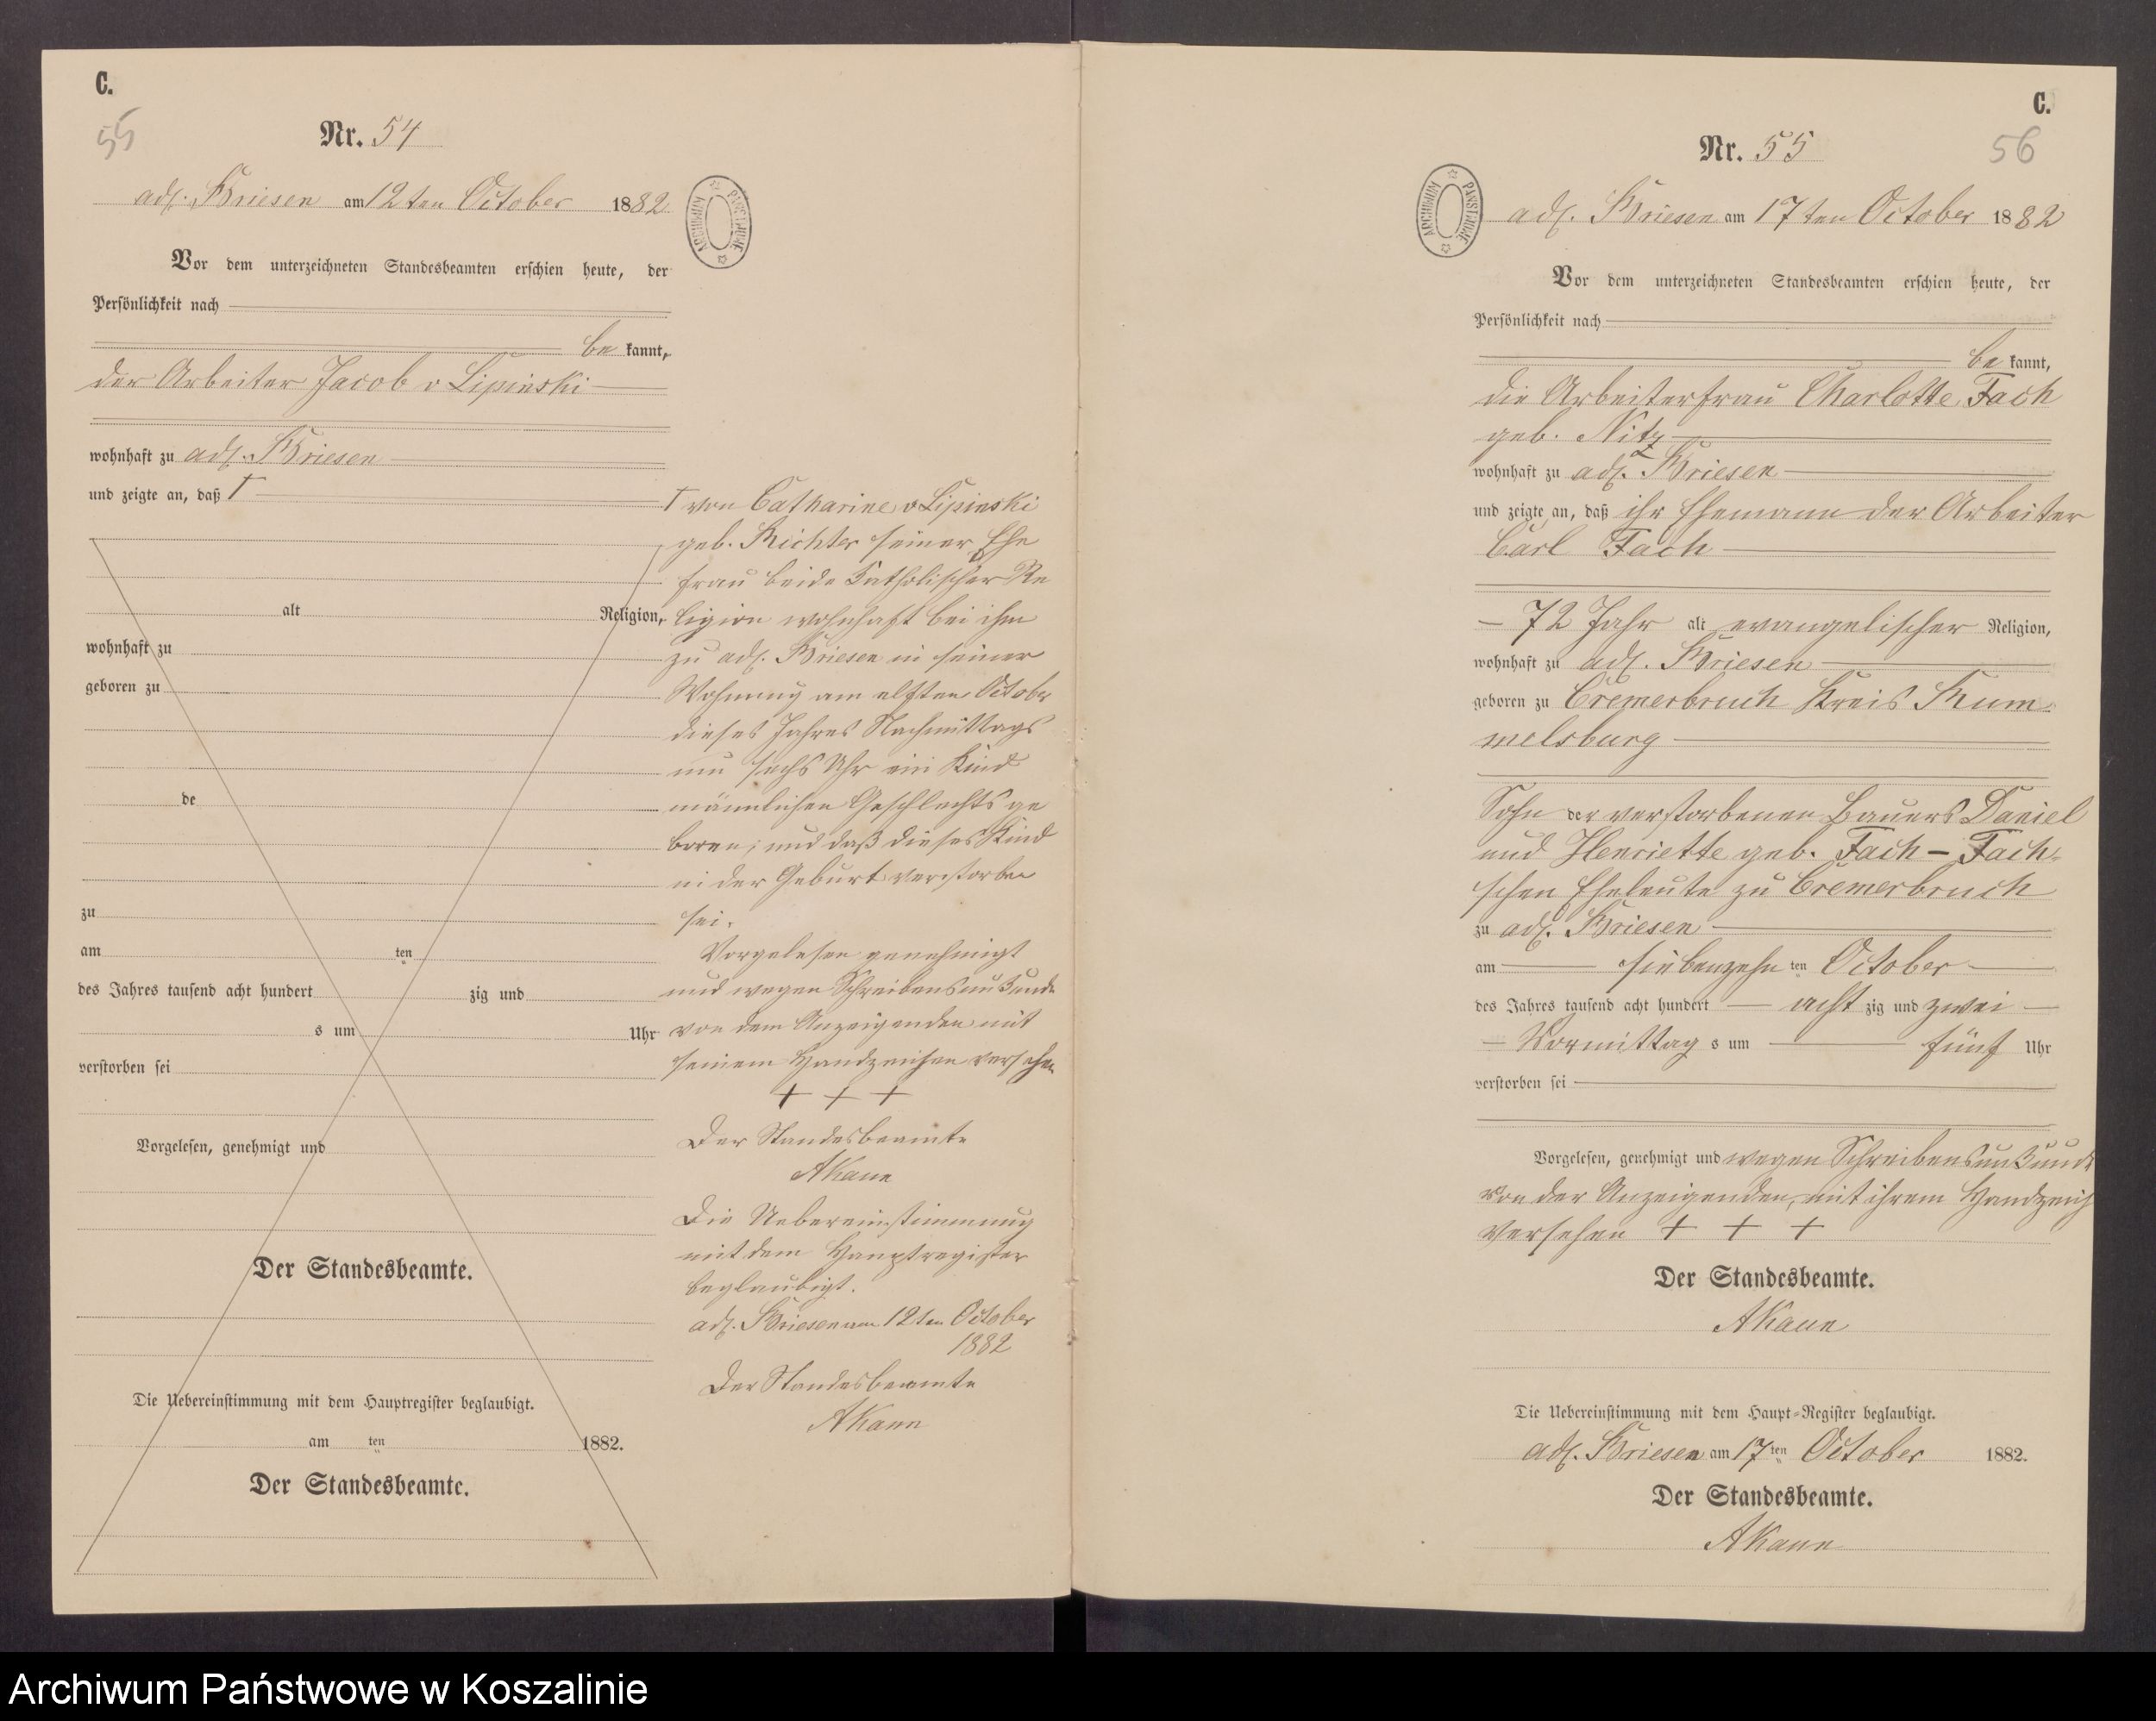 C.
55
Nr. 54
adl. Briesen am 12ten October 1882
ARCHIWUM PAŃSTWOWE
Vor dem unterzeichneten Standesbeamten erschien heute, der
Persönlichkeit nach
be kannt,
der Arbeiter Jacob v Lipinski
wohnhaft zu adl. Briesen
und zeigte an, daß †
alt Religion,
wohnhaft zu
geboren zu
de
zu
am ten
des Jahres tausend acht hundert zig und
s um Uhr
verstorben sei
Vorgelesen, genehmigt und
Der Standesbeamte.
Die Uebereinstimmung mit dem Hauptregister beglaubigt.
am ten 1882.
Der Standesbeamte.
† von Catharine v Lipinski
geb. Richter seiner Ehe
frau beide katholischer Re
ligion wohnhaft bei ihm
zu adl. Briesen in seiner
Wohnung am elften October
dieses Jahres Nachmittags
um sechs Uhr ein Kind
männlichen Geschlechts ge
boren, und daß dieses Kind
in der Geburt verstorben
sei.
Vorgelesen genehmigt
und wegen Schreibensunkunde
von dem Anzeigenden mit
seinem Handzeichen versehen
+ + +
Der Standesbeamte
AKann
Die Uebereinstimmung
mit dem Hauptregister
beglaubigt.
adl. Briesen am 12ten October
1882
Der Standesbeamte
AKann
C.
56
Nr. 55
ARCHIWUM PAŃSTWOWE
adl. Briesen am 17ten October 1882
Vor dem unterzeichneten Standesbeamten erschien heute, der
Persönlichkeit nach
be kannt,
die Arbeiterfrau Charlotte Fach
geb. Nitz
wohnhaft zu adl. Briesen
und zeigte an, daß ihr Ehemann der Arbeiter
Carl Fach
72 Jahr alt evangelischer Religion,
wohnhaft zu adl. Briesen
geboren zu Cremerbruch Kreis Rum-
melsburg
Sohn der verstorbenen Bauers Daniel
und Henriette geb. Fach - Fach-
schen Eheleute zu Cremerbruch
zu adl. Briesen
am siebenzehn ten October
des Jahres tausend acht hundert acht zig und zwei
Vormittag s um fünf Uhr
verstorben sei
Vorgelesen, genehmigt und wegen Schreibensunkunde
von der Anzeigenden, mit ihrem Handzeich
versehen + + +
Der Standesbeamte.
AKann
Die Uebereinstimmung mit dem Haupt-Register beglaubigt.
adl. Briesen am 17ten October 1882.
Der Standesbeamte.
AKann
Archiwum Państwowe w Koszalinie